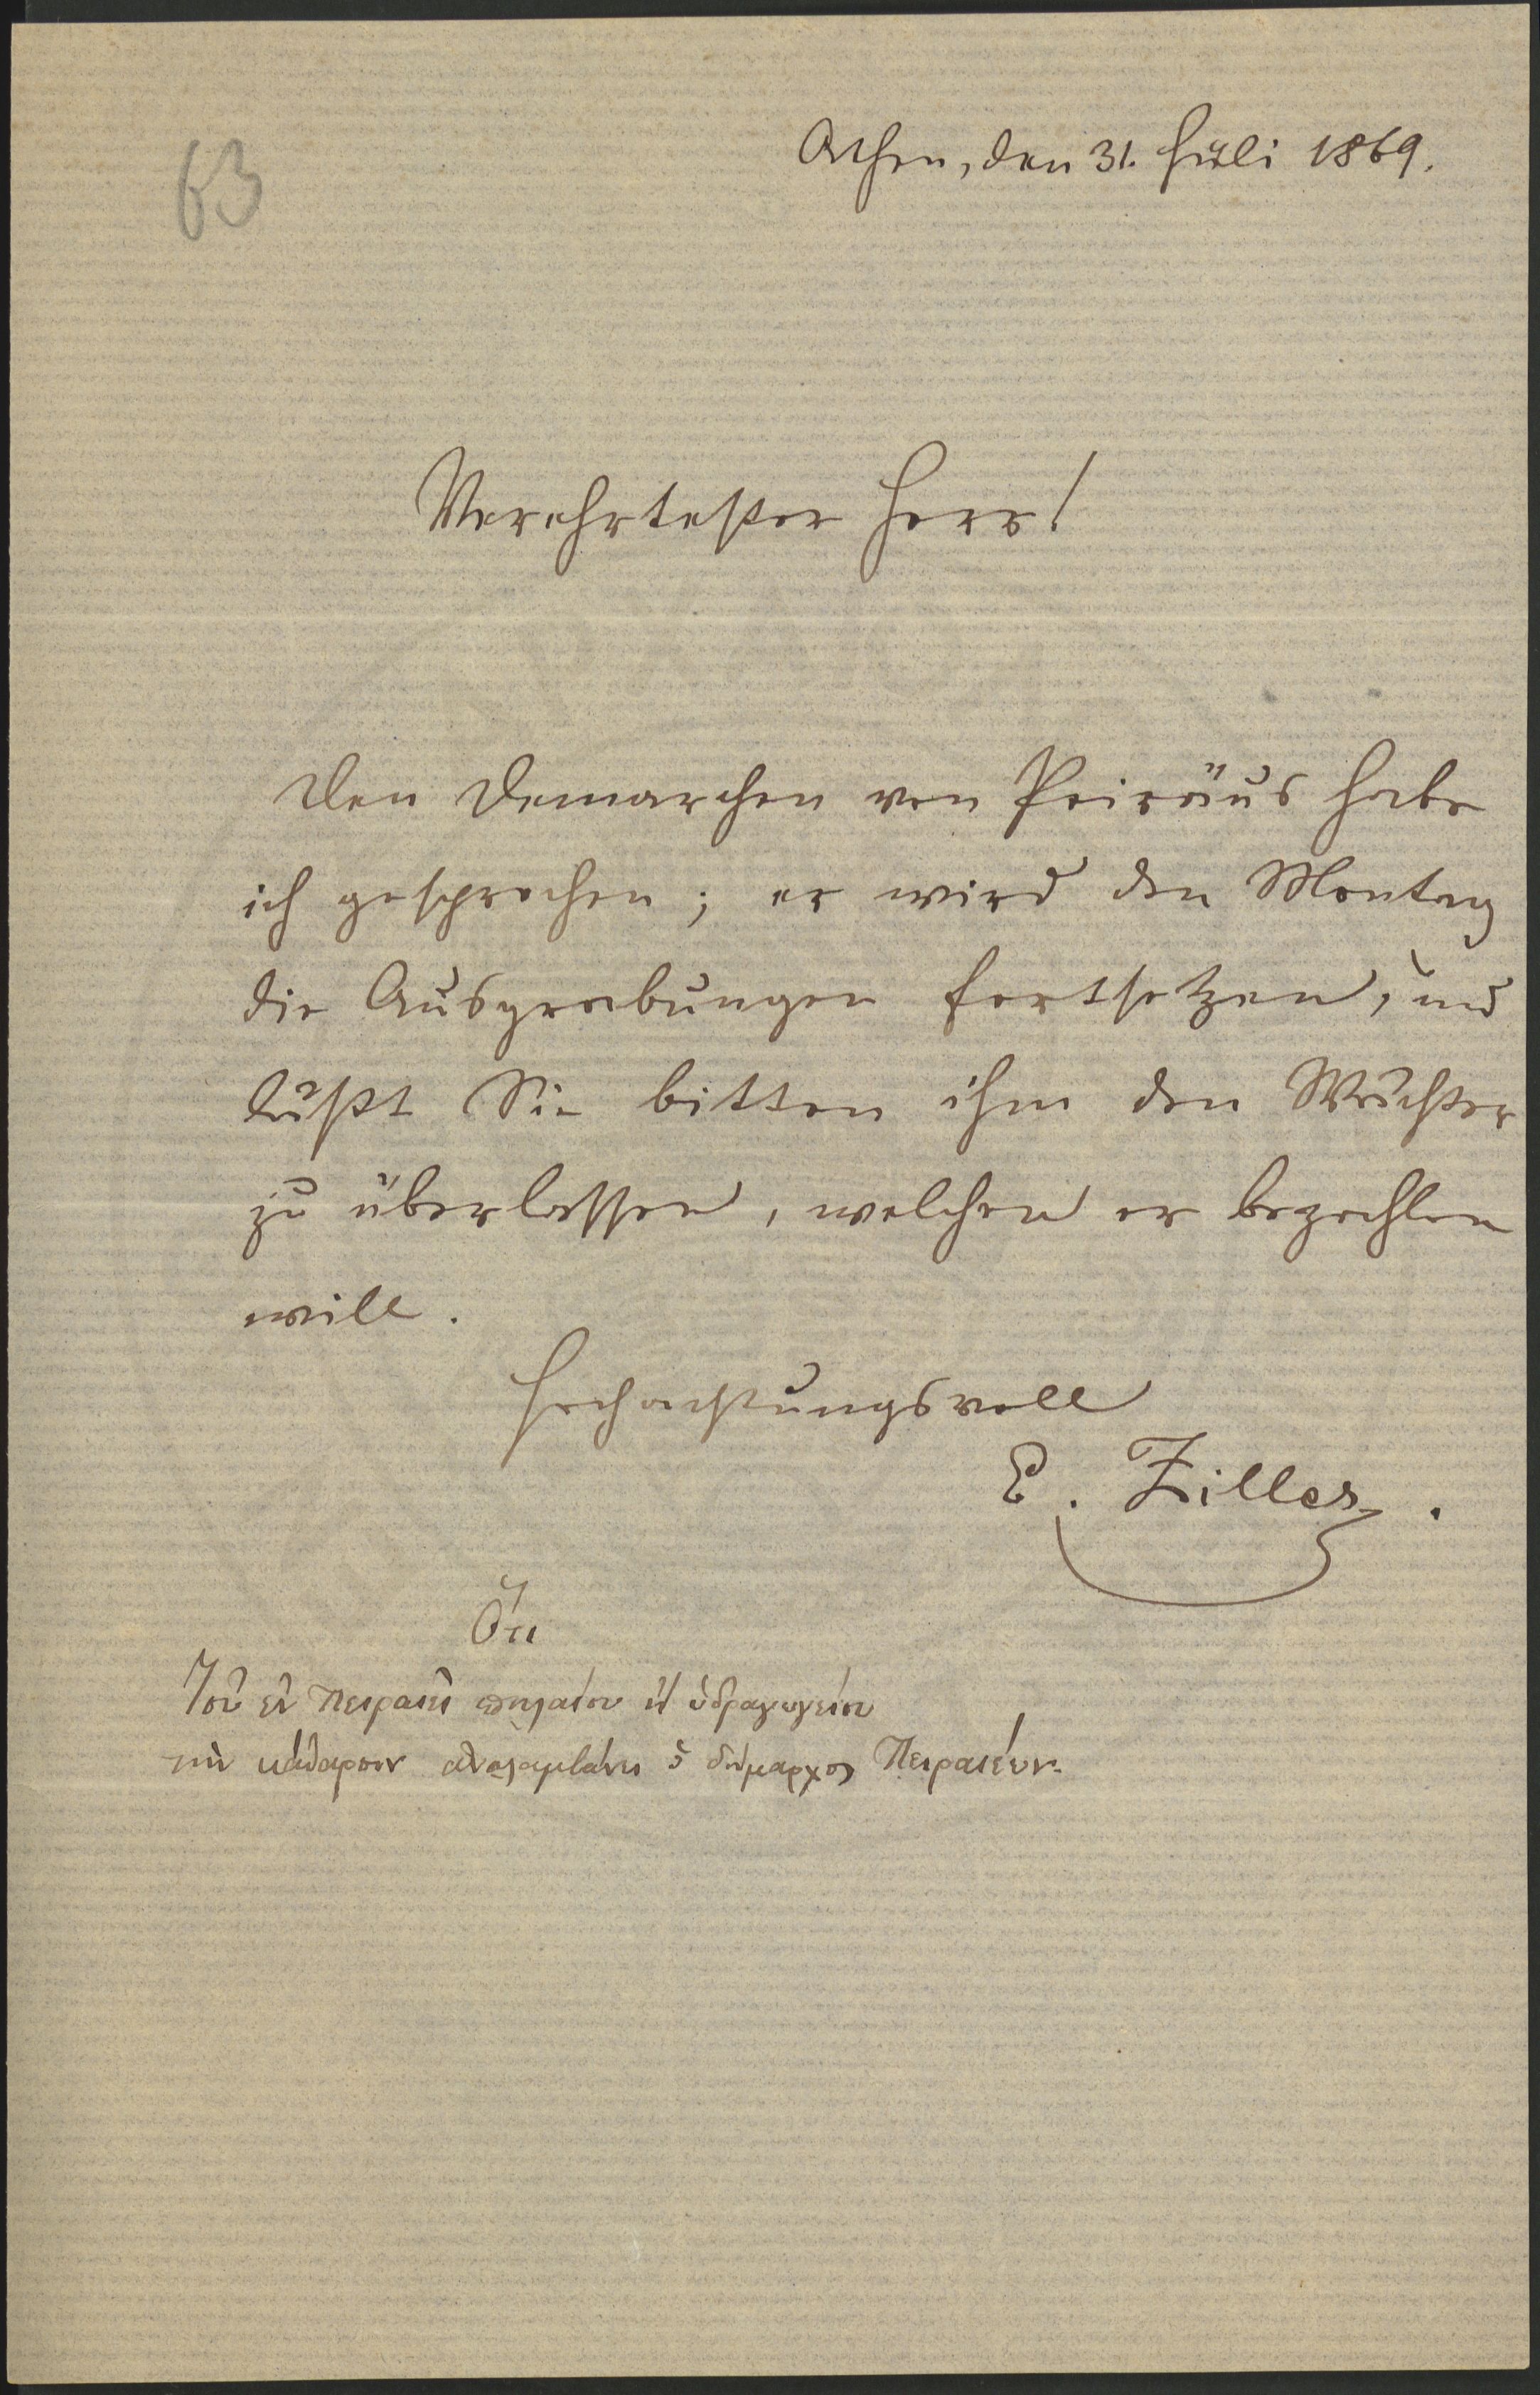 63
Athen, den 31. Juli 1869.
Verehrtester Herr!
Den Demarchen von Peiräus habe
ich gesprochen; er wird den Montag
die Ausgrabungen fortsetzen, und
läßt Sie bitten ihm den Wächter
zu überlassen, welchen er bezahlen
will.
Hochachtungsvoll
E. Ziller.
Ὅτι
Τοῦ ἐν Πειραιεῖ σπηλαίου ἢ ὑδραγωγείου
τὴν κάθαρσιν ἀναλαμβάνει ὁ δήμαρχος Πειραιέων.